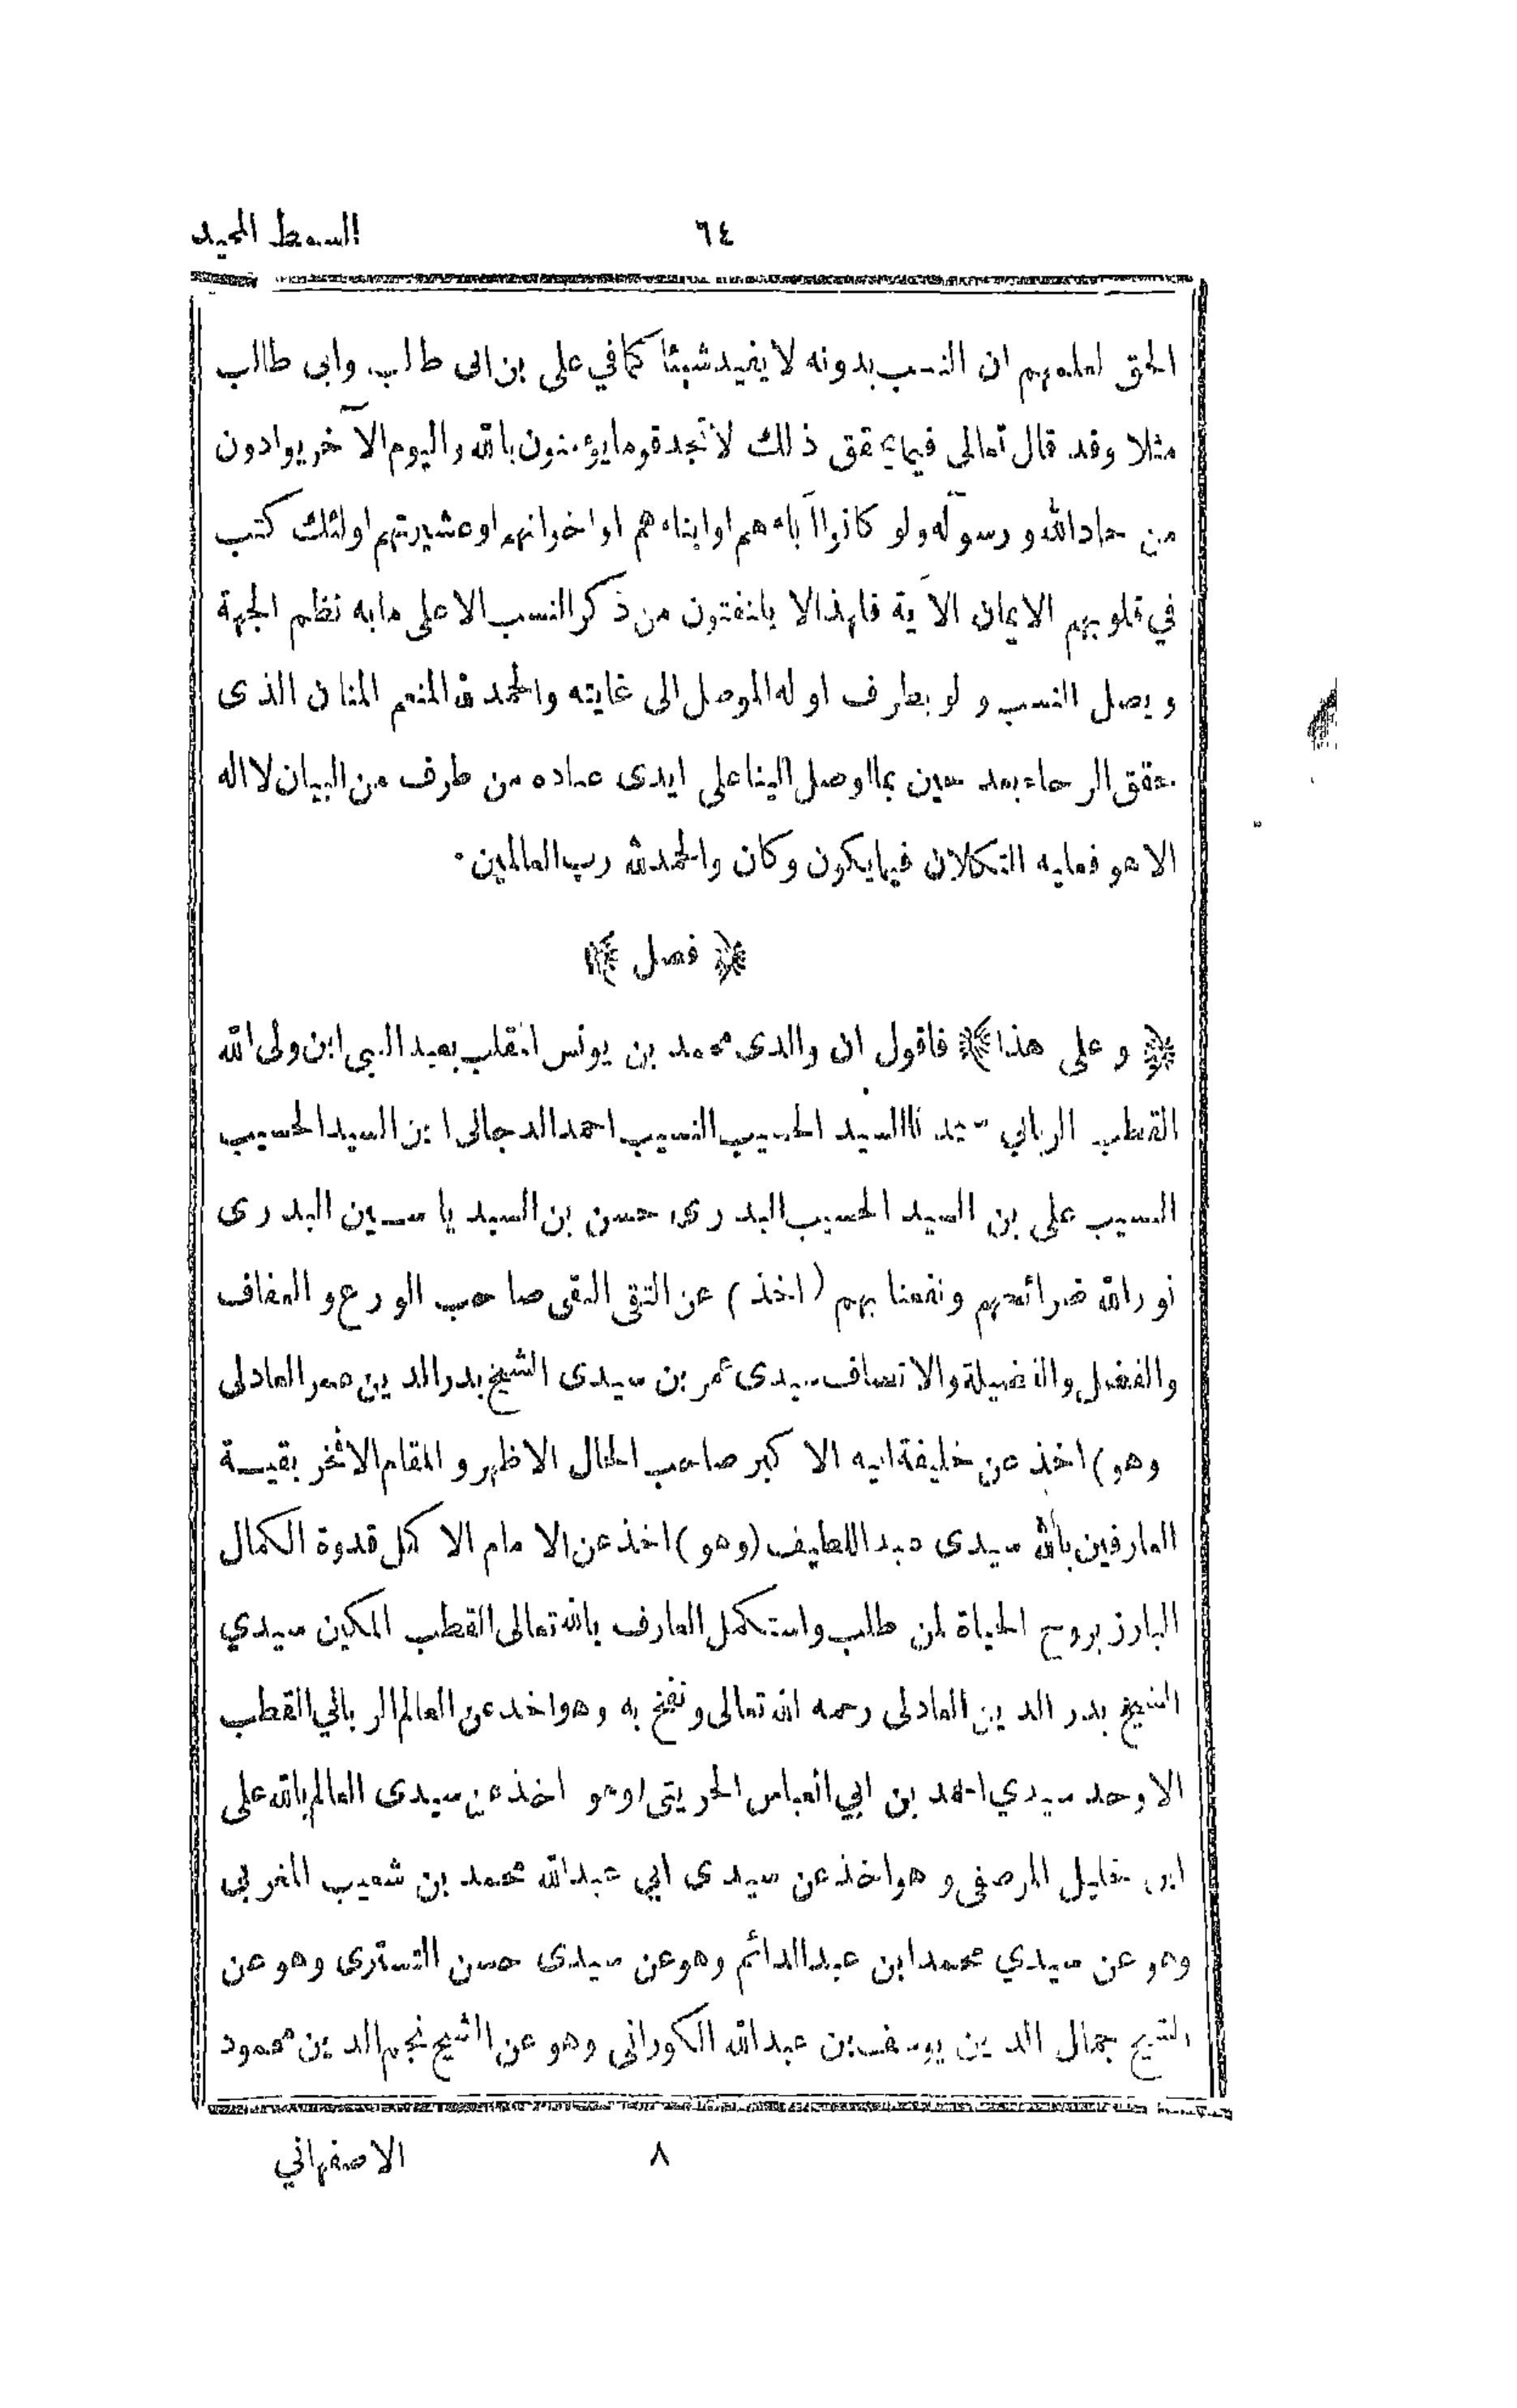 السمط المجيد
٦٤
الحق لعلمهم ان النسب بدونه لا يفيد شيئا كما في على بن ابى طالب وابى طالب
مثلا وقد قال تعالى فيما يحقق ذلك لا تجد قوما يؤمنون بالله واليوم الآخر يوادون
من حاد الله ورسوله ولو كانوا آباءهم او ابناءهم او اخوانهم او عشيرتهم اولئك كتب
في قلوبهم الايمان الآية فلهذا لا يلتفتون من ذكر النسب الا على ما به نظم الجهة
و يصل النسب و لو بطرف اوله الموصل الى غايته والحمد لله المنعم المنان الذى
حقق الرجاء بعد حين بما اوصل الينا على ايدى عباده من طرف من البيان لا اله
الا هو فعليه التكلان فيما يكون وكان والحمد لله رب العالمين ٠
﴿ فصل ﴾
﴿ و على هذا ﴾ فاقول ان والدى محمد بن يونس الملقب بعبد النبي ابن ولى الله
القطب الربانى سيدنا السيد الحسيب النسيب احمد الدجانى ابن السيد الحسيب
النسيب على بن السيد الحسيب البدرى حسن بن السيد ياسين البدرى
نور الله ضرائحهم ونفعنا بهم ( اخذ ) عن التقى النقى صاحب الورع و العفاف
والفضل والفضيلة والانصاف سيدى عمر بن سيدى الشيخ بدر الدين العادلى
وهو) اخذ عن خليفة ابيه الاكبر صاحب الحال الاظهر و المقام الافخر بقيـة
العارفين بالله سيدى عبد اللطيف (وهو) اخذ عن الامام الاكمل قدوة الكمال
البارز بروح الحياة لمن طلب واستكمل العارف بالله تعالى القطب المكين سيدي
الشيخ بدر الدين العادلى رحمه الله تعالى ونفع به وهو اخذ عن العالم الربانى القطب
الاوحد سيدي احمد بن ابي العباس الحريثى وهو اخذ عن سيدى العالم بالله على
ابن خليل المرصفى و هو اخذ عن سيدى ابي عبدالله محمد بن شعيب المغربى
وهو عن سيدي محمد ابن عبد الدائم وهو عن سيدى حسن التسترى وهو عن
الشيخ جمال الدين يوسف بن عبدالله الكورانى وهو عن الشيخ نجم الدين محمود
٨
الاصفهاني